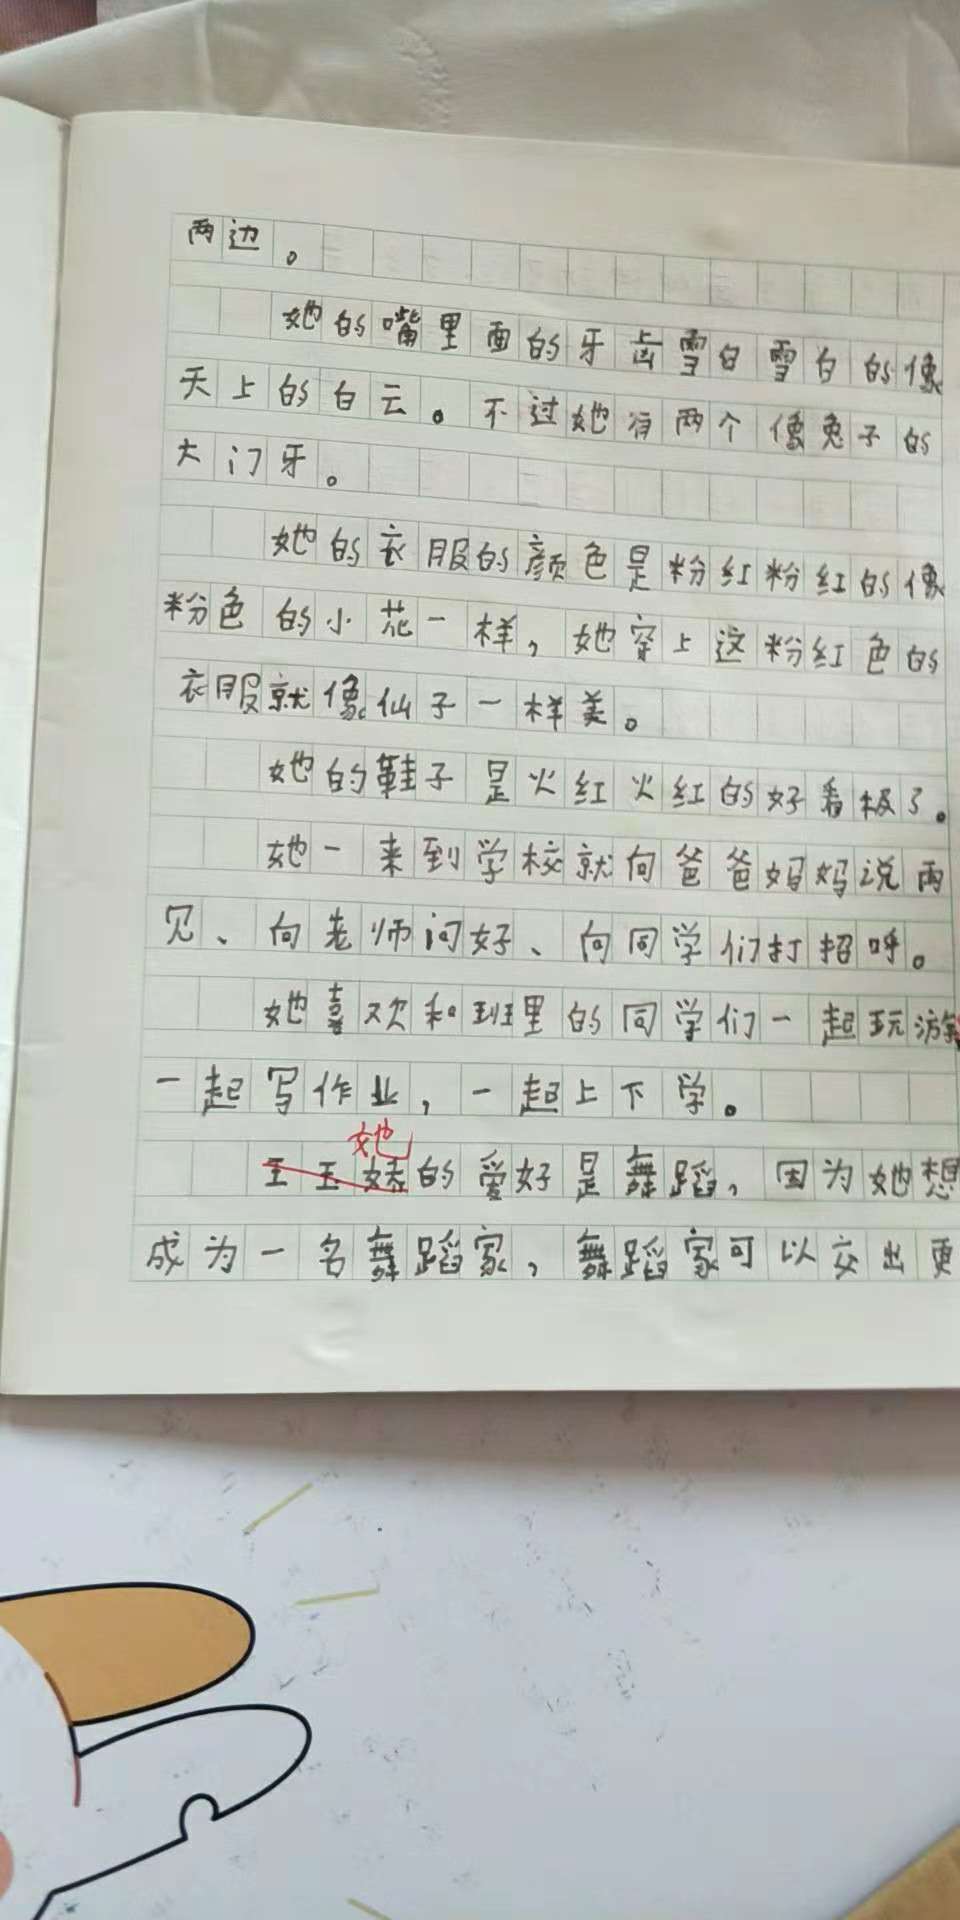 两边。
她的嘴里面的牙齿雪白雪白的像
天上的白云。不过她有两个像兔子的
大门牙。
她的衣服的颜色是粉红粉红的像
粉色的小花一样，她穿上这粉红色的
衣服就像仙子一样美。
她的鞋子是火红火红的好看极了。
她一来到学校就向爸爸妈妈说再
见、向老师问好、向同学们打招呼。
她喜欢和班里的同学们一起玩游
一起写作业，一起上下学。
她
王玉婷的爱好是舞蹈，因为她想
成为一名舞蹈家，舞蹈家可以交出更